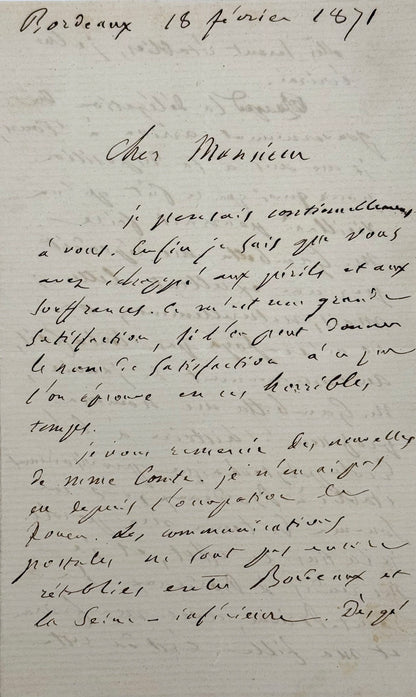 Bordeaux 18 février 1871
Cher Monsieur
je pensais continuellement
à vous. Enfin je sais que vous
avez échappé aux périls et aux
souffrances. Ce m'est une grande
satisfaction, si l'on peut donner
le nom de satisfaction à ce que
l'on éprouve en ces horribles
temps.
je vous remercie des nouvelles
de mme Comte. je n'en ai pas
eu depuis l'occupation de
Rouen. Les communications
postales ne sont pas encore
rétablies entre Bordeaux et
la Seine-inférieure. Dès que